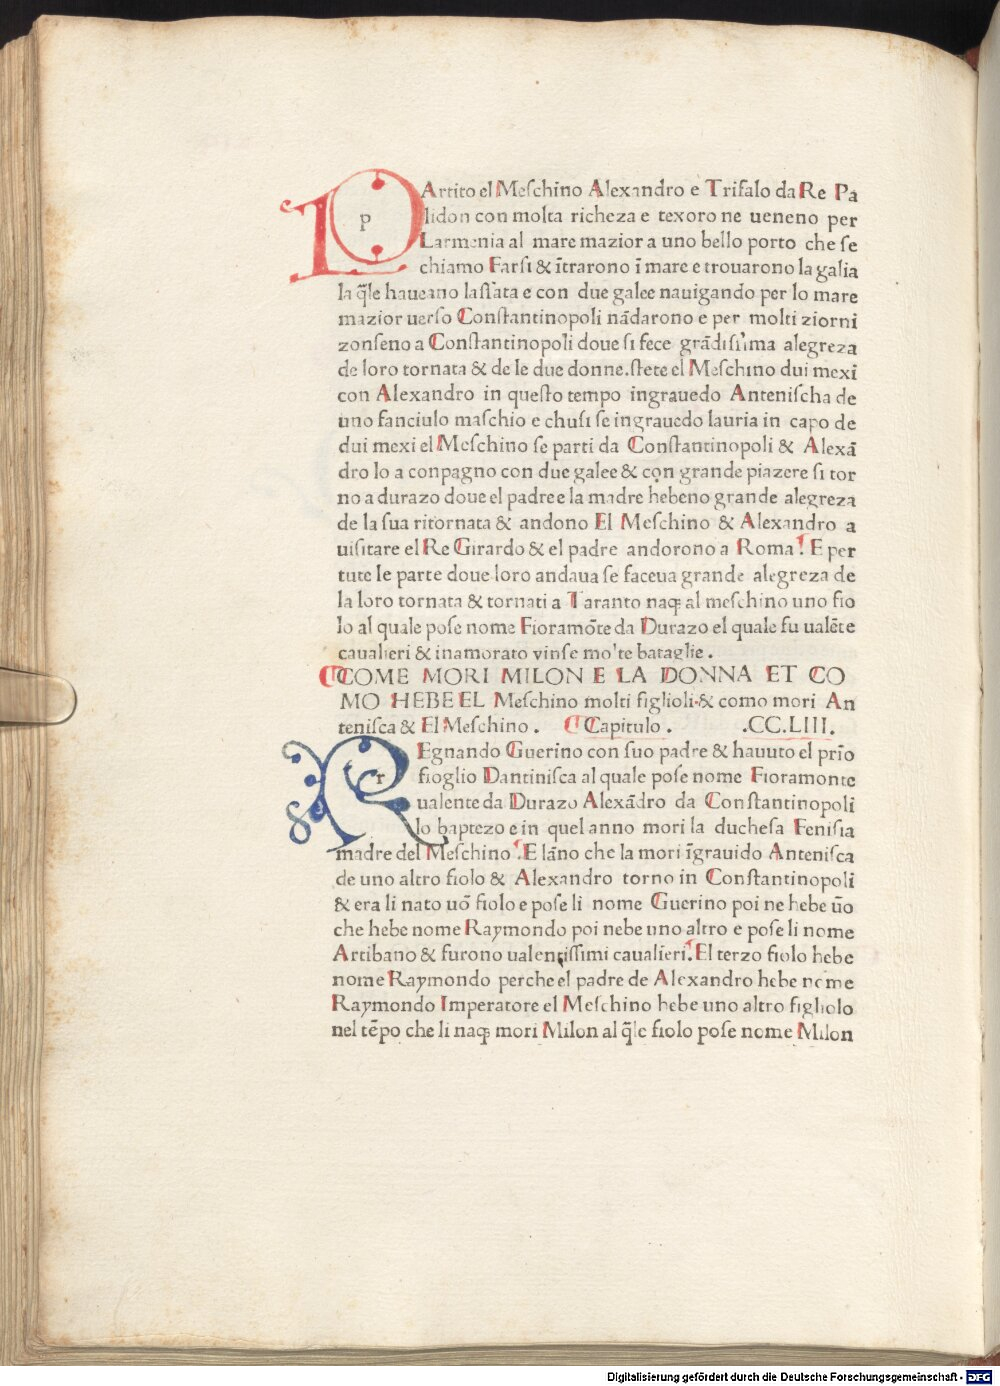 PArtito el Meſchino Alexandro e Trifalo da Re Pa
lidon con molta richeza e texoro ne ueneno per
Larmenia al mare mazior a uno bello porto che ſe
chiamo Farſi & ītrarono ī mare e trouarono la galia
la q̄le haueano laſſata e con due galee nauigando per lo mare
mazior uerſo Conſtantinopoli nādarono e per molti ziorni
zonſeno a Conſtantinopoli doue ſi fece grādiſſima alegreza
de loro tornata & de le due donne.ſtete el Meſchino dui mexi
con Alexandro in queſto tempo ingrauedo Anteniſcha de
uno fanciulo maſchio e chuſi ſe ingrauedo lauria in capo de
dui mexi el Meſchino ſe parti da Conſtantinopoli & Alexā
dro lo a conpagno con due galee & con grande piazere ſi tor
no a durazo doue el padre e la madre hebeno grande alegreza
de la ſua ritornata & andono El Meſchino & Alexandro a
uiſitare el Re Girardo & el padre andorono a Roma. E per
tute le parte doue loro andaua ſe faceua grande alegreza de
la loro tornata & tornati a Taranto naq; al meſchino uno fio
lo al quale poſe nome Fioramōte da Durazo el quale fu ualēte
caualieri & inamorato vinſe molte bataglie .
COME MORI MILON E LA DONNA ET CO
MO HEBE EL Meſchino molti figlioli.& como mori An
teniſca & El Meſchino . Capitulo . .CC.LIII.
REgnando Guerino con ſuo padre & hauuto el prīo
fioglio Dantiniſca al quale poſe nome Fioramonte
ualente da Durazo Alexādro da Conſtantinopoli
lo baptezo e in quel anno mori la ducheſa Feniſia
madre del Meſchino .E lāno che la mori īgrauido Anteniſca
de uno altro fiolo & Alexandro torno in Conſtantinopoli
& era li nato uō fiolo e poſe li nome Guerino poi ne hebe ūo
che hebe nome Raymondo poi nebe uno altro e poſe li nome
Artibano & furono ualentiſſimi caualieri. El terzo fiolo hebe
nome Raymondo perche el padre de Alexandro hebe nome
Raymondo Imperatore el Meſchino hebe uno altro figliolo
nel tēpo che li naq; mori Milon al q̄le fiolo poſe nome Milon
Digitalisierung gefördert durch die Deutsche Forschungsgemeinschaft - DFG